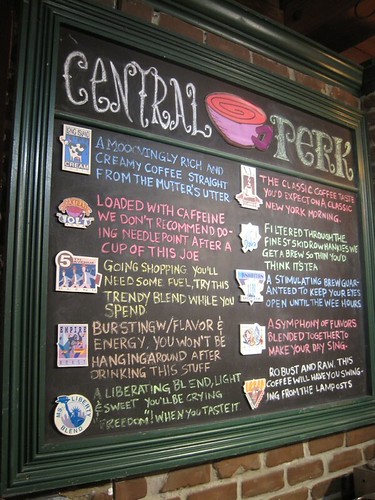 CENTRAL PERK
CREAM
A MOOOVINGLY RICH AND
CREAMY COFFEE STRAIGHT
FROM THE MUTTER'S UTTER
JOLT
LOADED WITH CAFFEINE
WE DON'T RECOMMEND DO-
ING NEEDLEPOINT AFTER A
CUP OF THIS JOE
5
GOING SHOPPING YOU'LL
NEED SOME FUEL, TRY THIS
TRENDY BLEND WHILE YOU
SPEND
EMPIRE
BURSTING W/FLAVOR &
ENERGY, YOU WON'T BE
HANGING AROUND AFTER
DRINKING THIS STUFF
MS. LIBERTY
BLEND
A LIBERATING BLEND, LIGHT
& SWEET YOU'LL BE CRYING
"FREEDOM"! WHEN YOU TASTE IT
THE CLASSIC COFFEE TASTE
YOU'D EXPECT ON A CLASSIC
NEW YORK MORNING.
FILTERED THROUGH THE
FINEST SKID ROW HANKIES WE
GET A BREW SO THIN YOU'D
THINK ITS TEA
A STIMULATING BREW GUAR-
ANTEED TO KEEP YOUR EYES
OPEN UNTIL THE WEE HOURS
A SYMPHONY OF FLAVORS
BLENDED TOGETHER TO
MAKE YOUR DAY SING.
ROBUST AND RAW. THIS
COFFEE WILL HAVE YOU SWING-
ING FROM THE LAMP OSTS